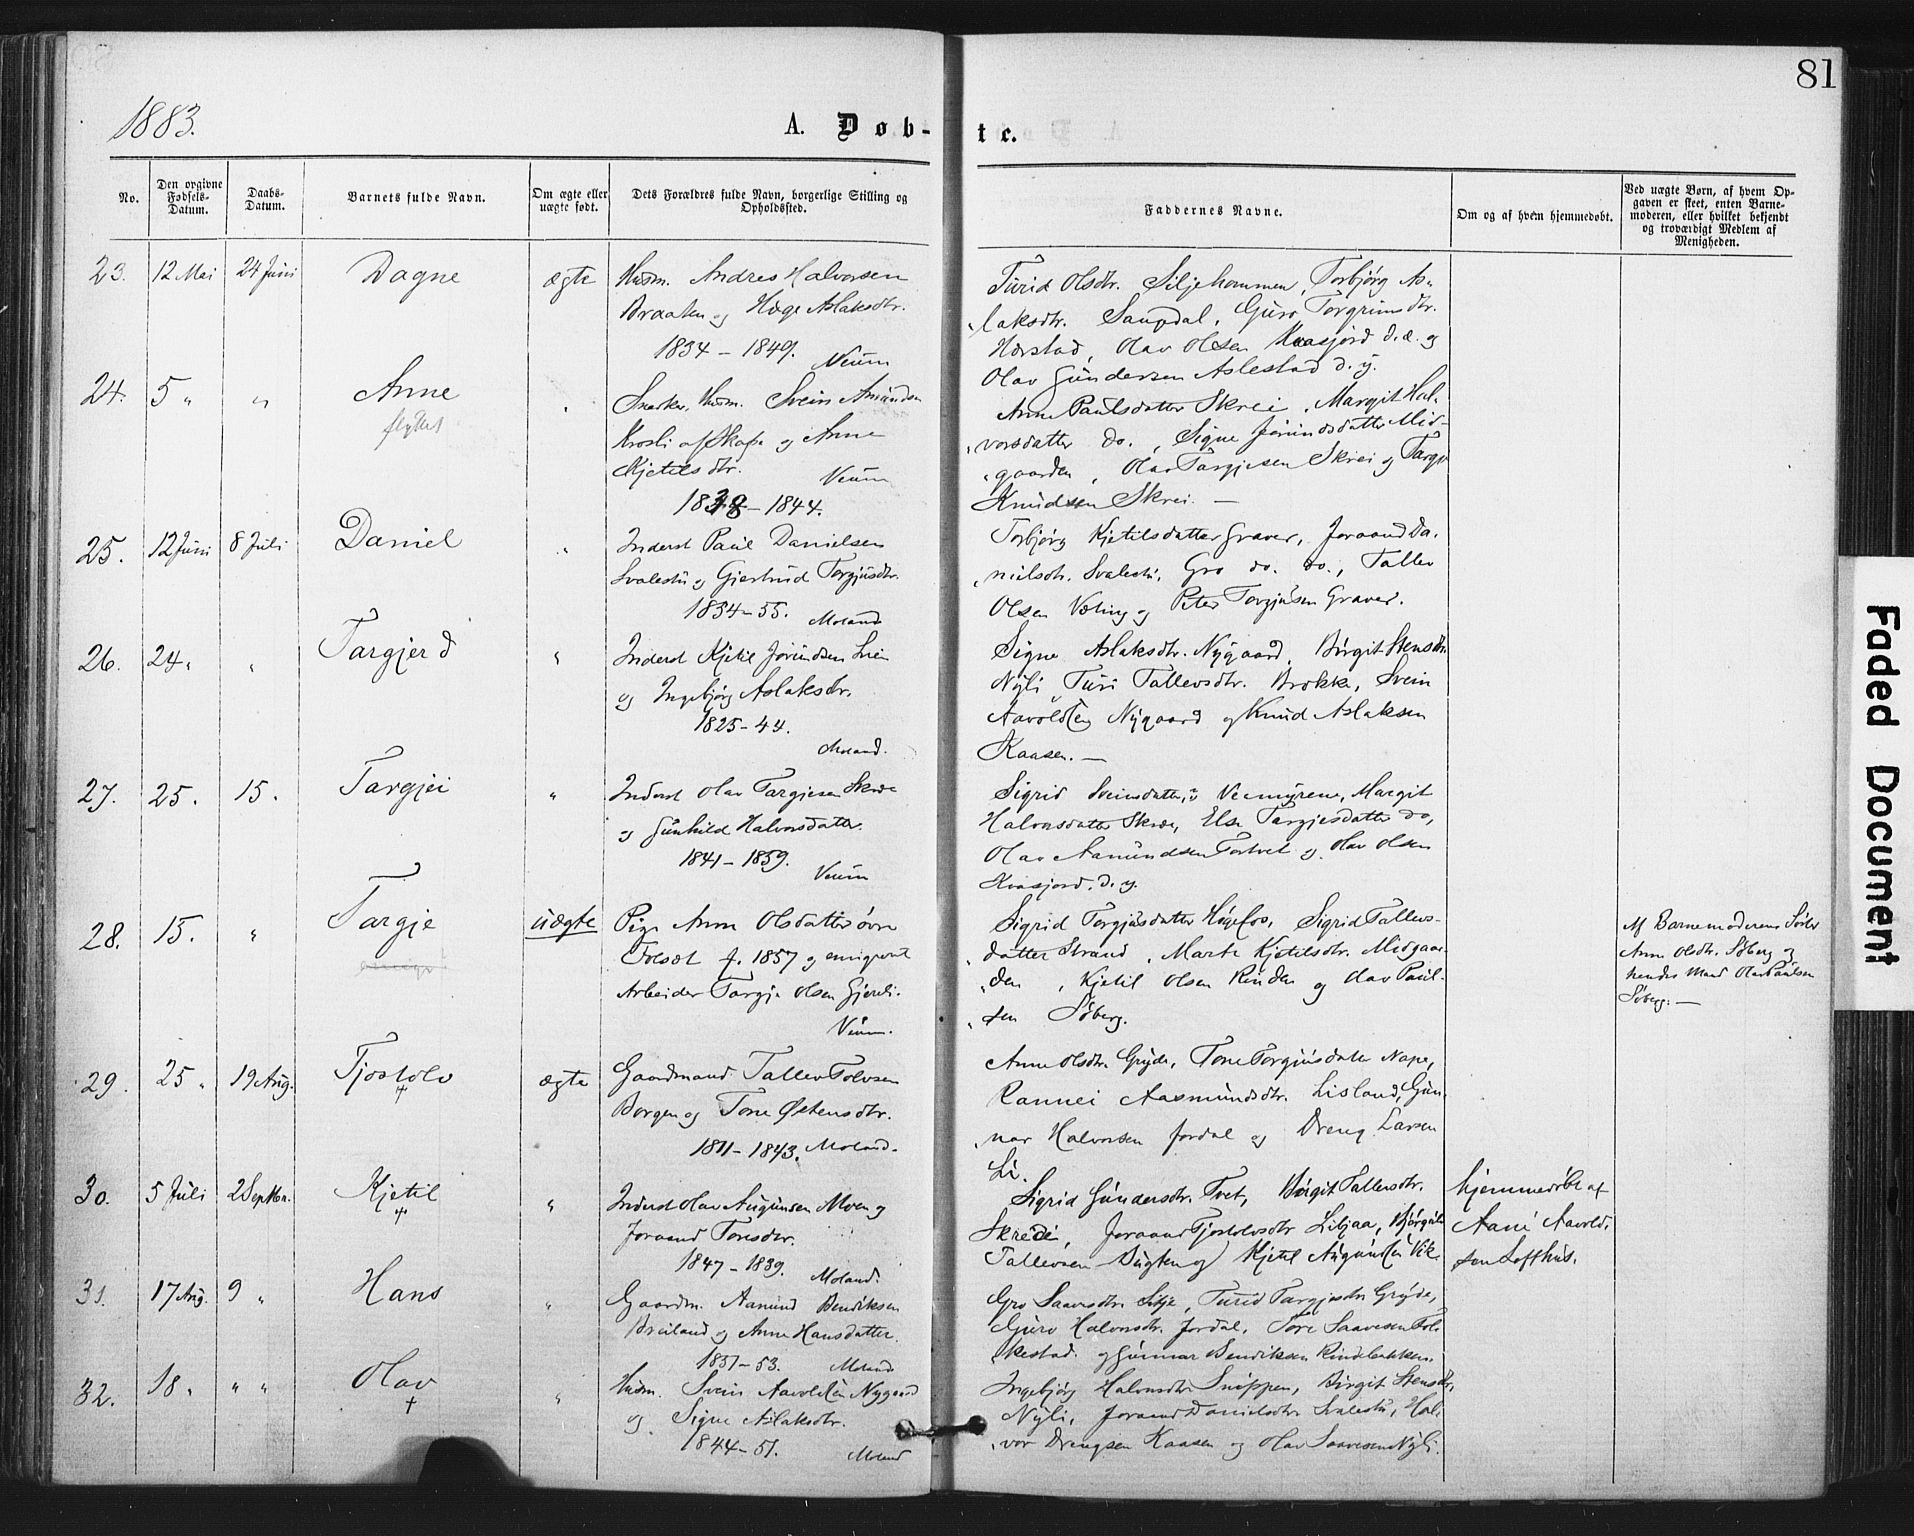 81
1883.
A. Døb-
te.
No.
Den opgivne Fødsels-Datum.
Daabs-Datum.
Barnets fulde Navn.
Om ægte eller uægte født.
Dets Forældres fulde Navn, borgerlige Stilling og Opholdssted.
Faddernes Navne.
Om og af hvem hjemmedøbt.
Ved uægte Børn, af hvem Op-
gaven er skeet, enten Barne-
moderen, eller hvilket bekjendt
og troværdigt Medlem af
Menigheden.
23. 12 Mai 24 Juni Dagne ægte Husm. Andres Halvorsen
Braaten og Hæge Aslaksdtr.
1834 - 1849.
Veum
Turid Olsdtr. Siljehommen, Torbjørg As-
laksdtr. Saupdal, Guro Torgrimsdtr.
Hærstad, Olav Olsen Kvasjord d.æ. og
Olav Gundersen Aslestad d.y.
24. 5 " " Anne
flyttet
Husm. Svein Amundsen
Krosli af Skafse og Anne
Kjetilsdtr.
Veum
1838 - 1844.
Anne Paulsdatter Skrei, Margit Hal-
vorsdatter do., Signe Jørundsdatter Mid-
gaarden, Olav Targjesen Skrei og Targe
Knudsen Skrei. —
25. 12 Juni 8 Juli Daniel " Inderst Paul Danielsen
Svalestu og Gjertrud Torgjusdtr.
1834 - 55. Moland
Torbjørg Kjetilsdatter Graver, Joraand Da-
nielsdtr. Svalestu, Gro do. do., Tallev
Olsen Væting og Peter Torgjusen Graver.
26. 24 " " Targjerd " Inderst Kjetil Jørundsen
og Ingebjørg Aslaksdtr.
1825 - 44.
Moland.
Signe Aslaksdtr. Nygaard, Birgit Stensdtr.
Nyli, Turi Tallevsdtr. Brokke, Svein
Aavoldsen Nygaard og Knud Aslaksen
Kaasen. —
27. 25. 15. Targjei " Inderst Olav Targjesen Skræe
og Gunhild Halvorsdatter.
1841 - 1859.
Veum
Sigrid Sveinsdatter, Veumyrene, Margit
Halvorsdatter Skræe, Else Targjesdatter do,
Olav Aamundsen Tortvet og Olav Olsen
Kvasjord. d. y.
28. 15. " Targje uægte Pige Anne Olsdatter øvre
Folsæt f. 1857 og emigreret
Arbeider Targje Olsen Gjerdi.
Veum.
Sigrid Torgjusdatter Høgefos, Sigrid Tallevs-
datter Strand, Marte Kjetilsdtr. Midgaar-
den, Kjetil Olsen Rinden og Olav Paul-
sen Søberg.
Af Barnemoderens Søster
Anne Olsdtr. Søberg og
hendes Mand Olav Paulsen
Søberg. —
29. 25 " 19 Aug. Tjostolv
+
ægte Gaardmand Tallev Folvsen
Borgen og Tone Østensdtr.
1811 - 1843. Moland.
Anne Olsdtr. Gryde, Tone Torgjusdatter Nape,
Rannei Aasmundsdtr. Lisland, Gun-
nar Halvorsen Jordal og Dreng Larsen
Li.
30. 5 Juli 2 Septbr. Kjetil
+
" Inderst Olav Augunsen Moen og
Joraand Toresdtr.
1847 - 1839. Moland.
Sigrid Gundersdtr. Tvet, Birgit Tallevsdtr.
Skredi, Joraand Tjostolvsdtr Liljaa, Bjørgulv
Tallevsen Bugten og Kjetil Augundsen Vik.
hjemmedøbt af
Aani Aavold-
sen Lofthus.
31. 17 Aug. 9 " Hans " Gaardm. Aamund Bendiksen
Breiland og Anne Hansdatter.
1851 - 53. Moland
Gro Saavesdtr Lilje, Turid Targjesdtr Gryde,
Guro Halvorsdtr. Jordal, Tore Saavesen Fol-
kestad og Gunnar Bendiksen Rindebakken.
32. 18 " " " Olav
+
" Husm. Svein Aavoldsen Nygaard
og Signe Aslaksdtr.
1844 - 51. Moland
Ingebjørg Halvorsdtr Snippen, Birgit Stensdtr,
Nyli, Joraand Danielsdtr Svalestu, Hal-
vor Drengsen Kaasen og Olav Saavesen Nyli.
Faded Document